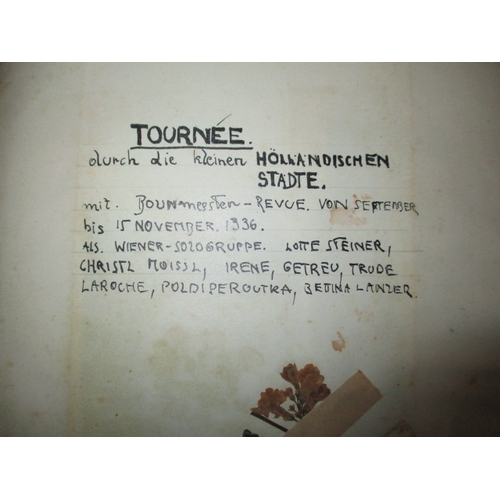 TOURNÉE.
durch die kleinen HÖLLÄNDISCHEN
STÄDTE.
mit. BOUWMEESTER-REVUE. VON SEPTEMBER
bis 15 NOVEMBER. 1936.
ALS. WIENER-SOLOGRUPPE. LOTTE STEINER,
CHRISTL MOISSL, IRENE, GETREU, TRUDE
LAROCHE, POLDI PEROUTKA, BETINA LANZER.